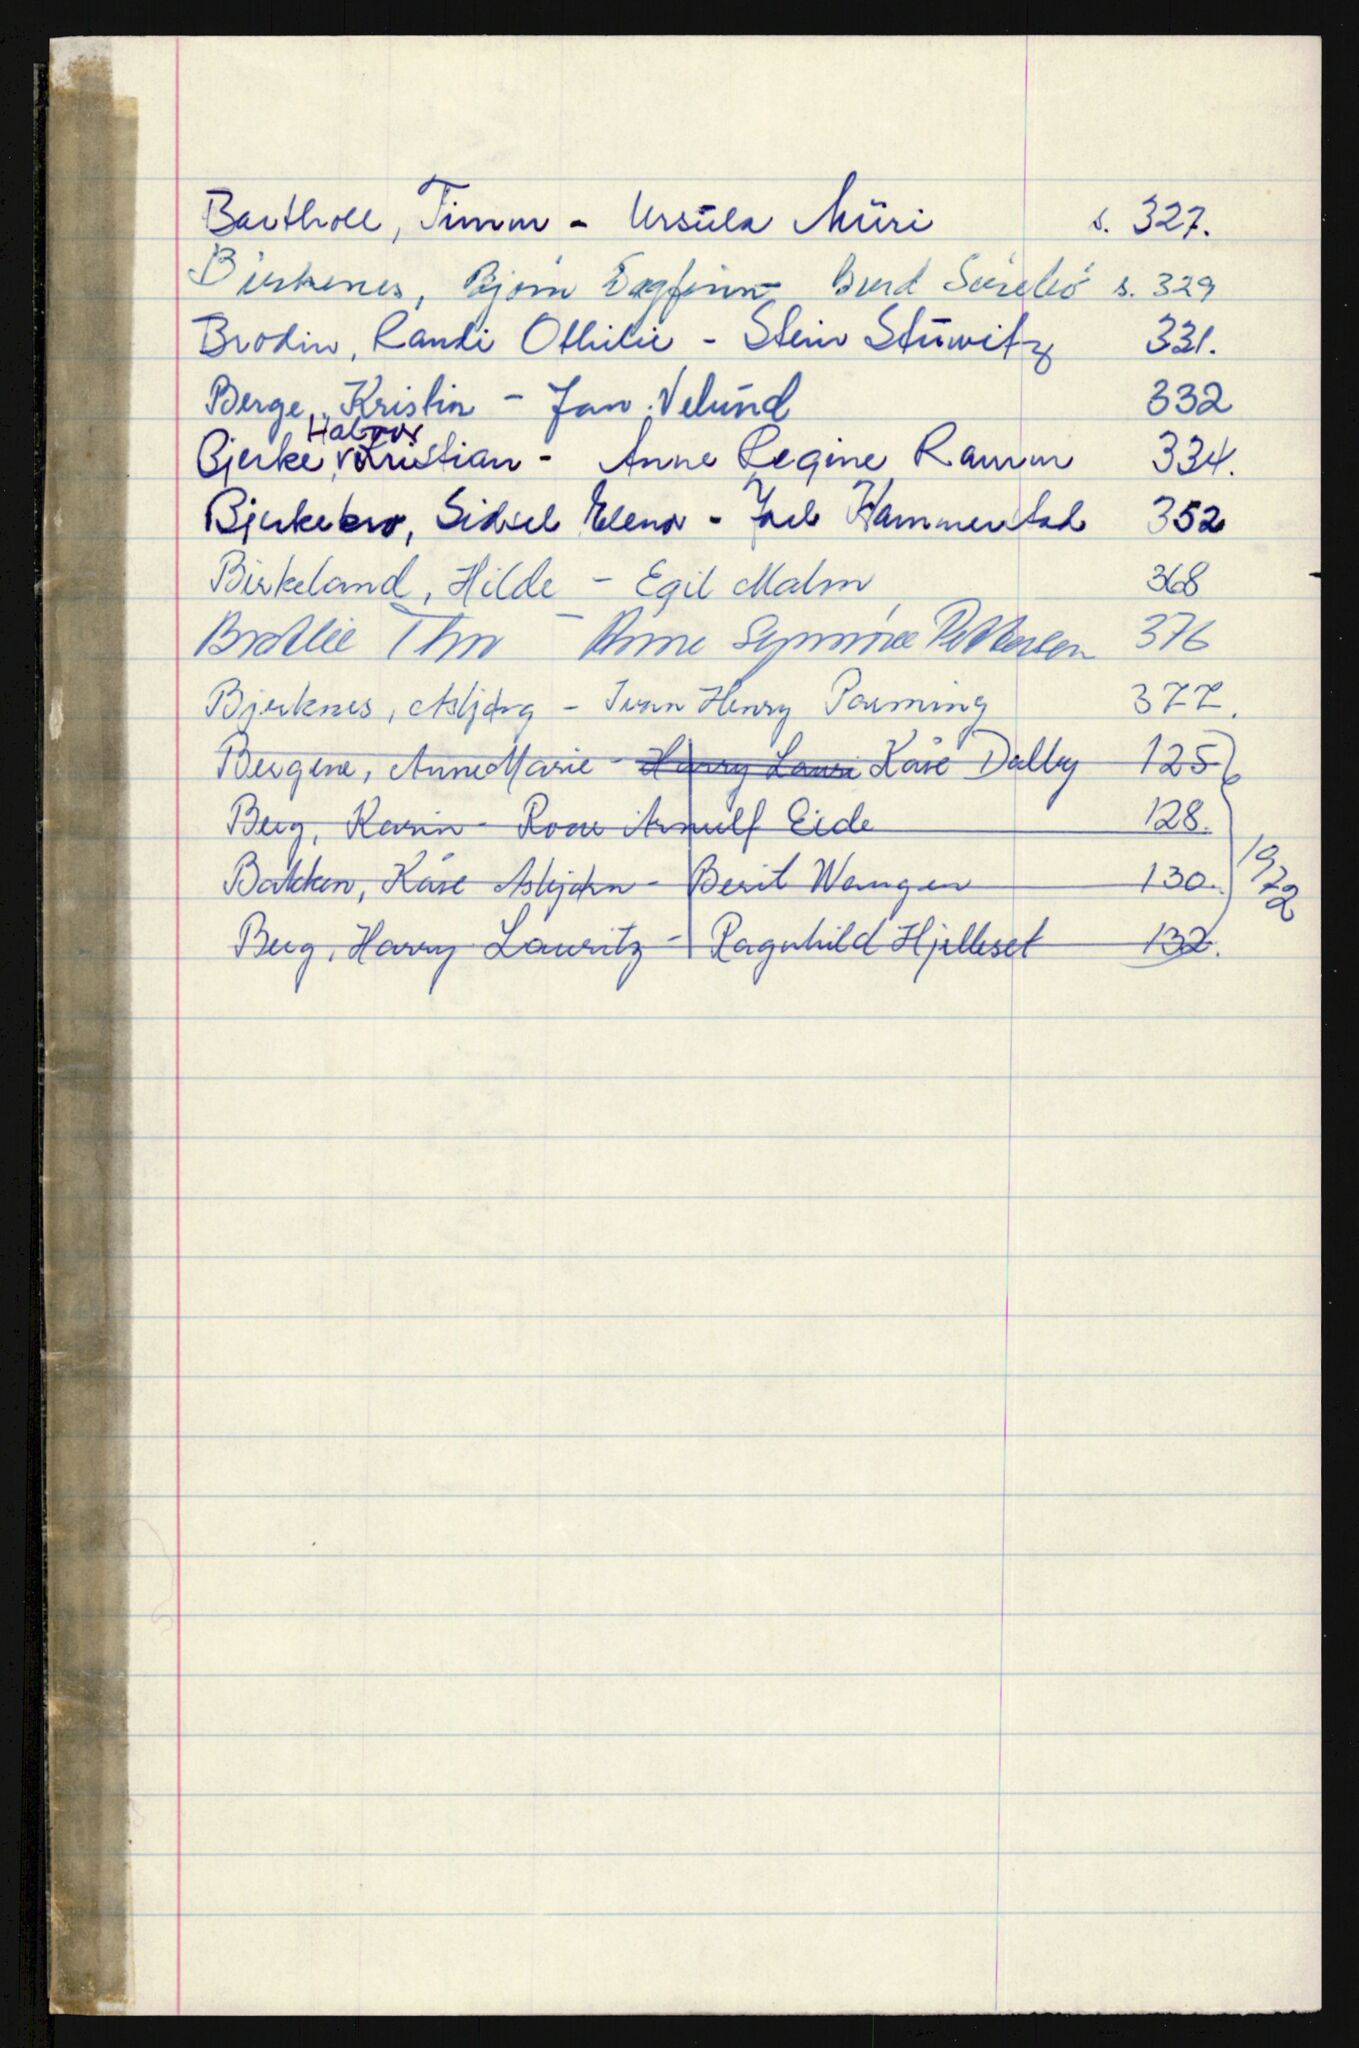 Bartholl, Timm - Ursula Müri s. 327.
Birkenes, Bjørn Dagfinn - s. 329
Brodin, Randi Othilie - Stein Stüwitz 331.
Berge, Kristin - Jan Velund 332
Halvor
Bjerke, Kristian - Anne Regine Ramm 334.
Bjerkebro, Sidsel Elena - Joel Hammerstad 352
Birkeland, Hilde - Egil Malm 368
Brattlie Thor - Anne Synnöve Pettersen 376
Bjerknes, Asbjørg - Ivan Henry Parming 377.
Bergene, Anne Marie - Harry Lauri Kåre Dalby 125
Berg, Karin - Roar Arnulf Eide 128.
Bakken, Kåre Asbjørn - Berit Wangen 130.
Berg, Harry Lauritz - Ragnhild Hjelleset 132.
1972